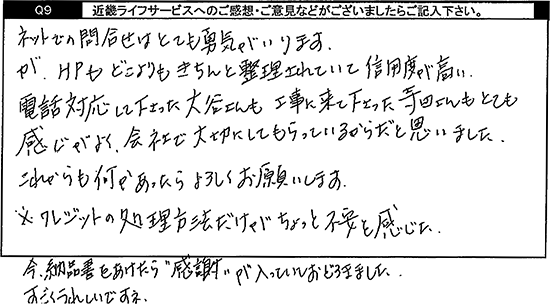 Q9 近畿ライフサービスへのご感想・ご意見などがございましたらご記入下さい。
ネットでの問合せはとても勇気がいります。
が、HPも どこよりも きちんと整理されていて 信用度が高い。
電話対応して下さった 大谷さんも 工事に来て下さった 寺田さんも とても
感じがよく、会社で 大切にしてもらっているからだと思いました。
これからも何かあったら よろしく お願いします。
※クレジットの処理方法だけが ちょっと 不安と感じた。
今、納品書をあけたら"感謝"が入っていておどろきました。
すごくうれしいですネ。